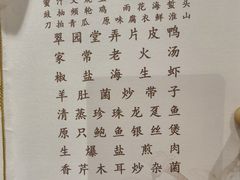 翠园堂弄片皮鸭
家常老火汤
椒盐海生虾
羊肚菌炒带子
清蒸珍珠龙趸鱼
原只鲍鱼银丝煲
生爆盐煎肉
香芹木耳炒杂菌